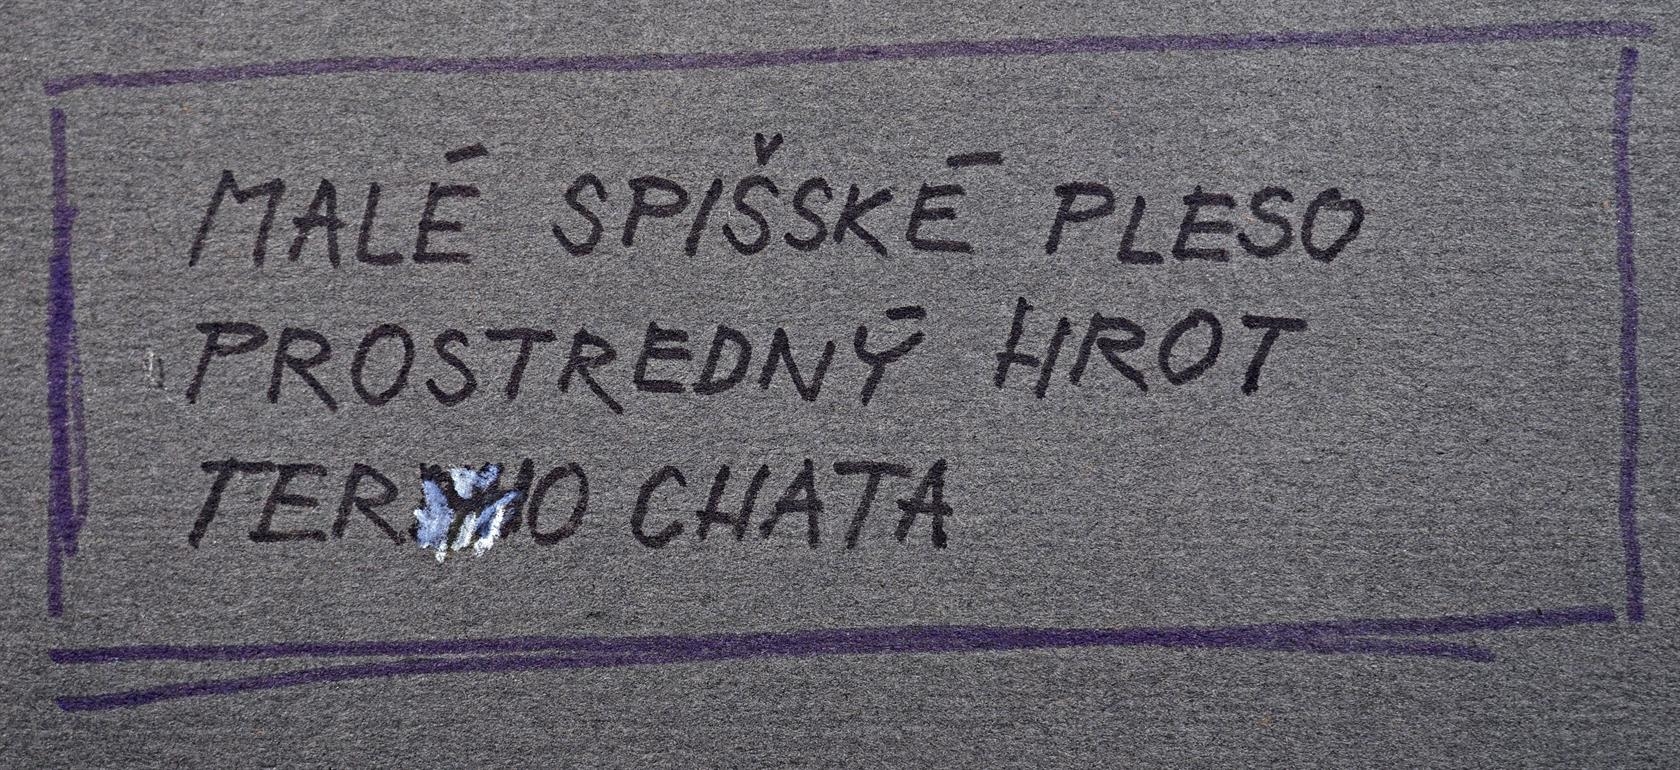 MALÉ SPIŠSKÉ PLESO
PROSTREDNÝ HROT
CHATA